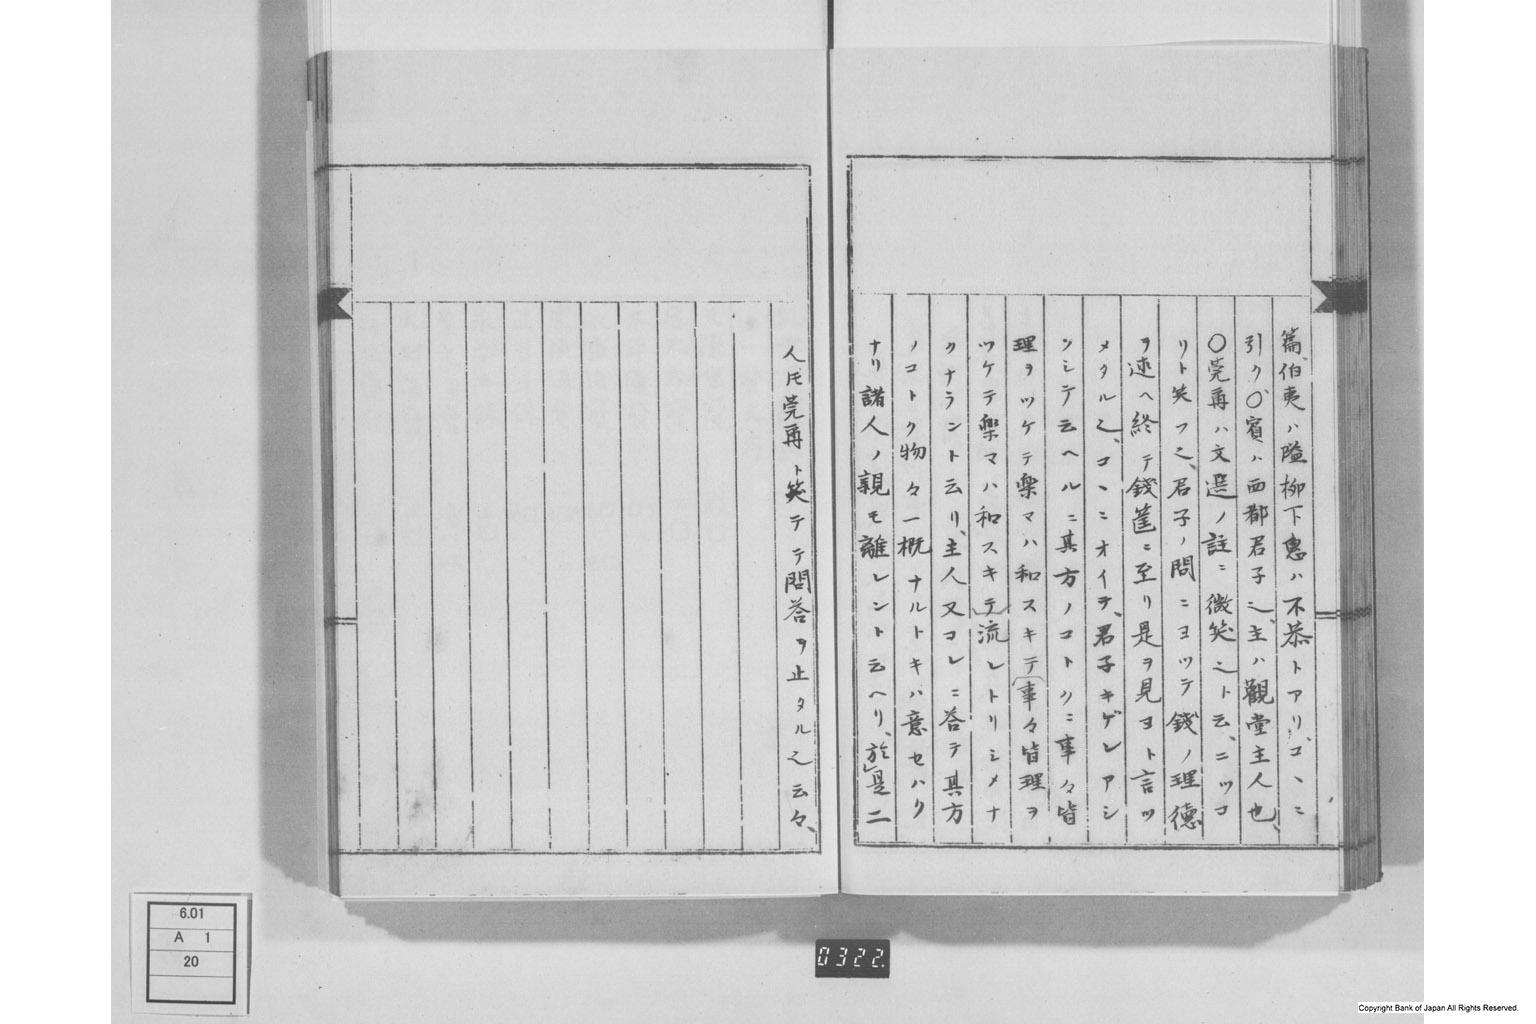 篇、伯夷ハ隘柳下惠ハ不恭トアリ、コヽニ
引ク○賓ハ西都君子之、主ハ觀堂主人也、
○莞爾ハ文選ノ註ニ微笑之ト云、ニツコ
リト笑フ之、君子ノ問ニヨツテ錢ノ理德
ヲ述ヘ終テ錢筐ニ至リ是ヲ見ヨト言ツ
メタル之、コヽニオイテ、君子キゲンアシ
クシテ云ヘルニ其方ノコトクニ事々皆
理ヲツケテ楽マハ和スキテ事々皆理ヲ
ツケテ樂マハ和スキテ流レトリシメナ
クナラント云リ、主人又コレニ荅テ其方
ノコトク物々一概ナルトキハ意セハク
ナリ諸人ノ親モ離レントテ云ヘリ、於是二
人トモ莞爾ト笑テテ問荅ヲ止タル之云々、
6.01
A 1
20
0322.
Copyright Bank of Japan All Rights Reserved.